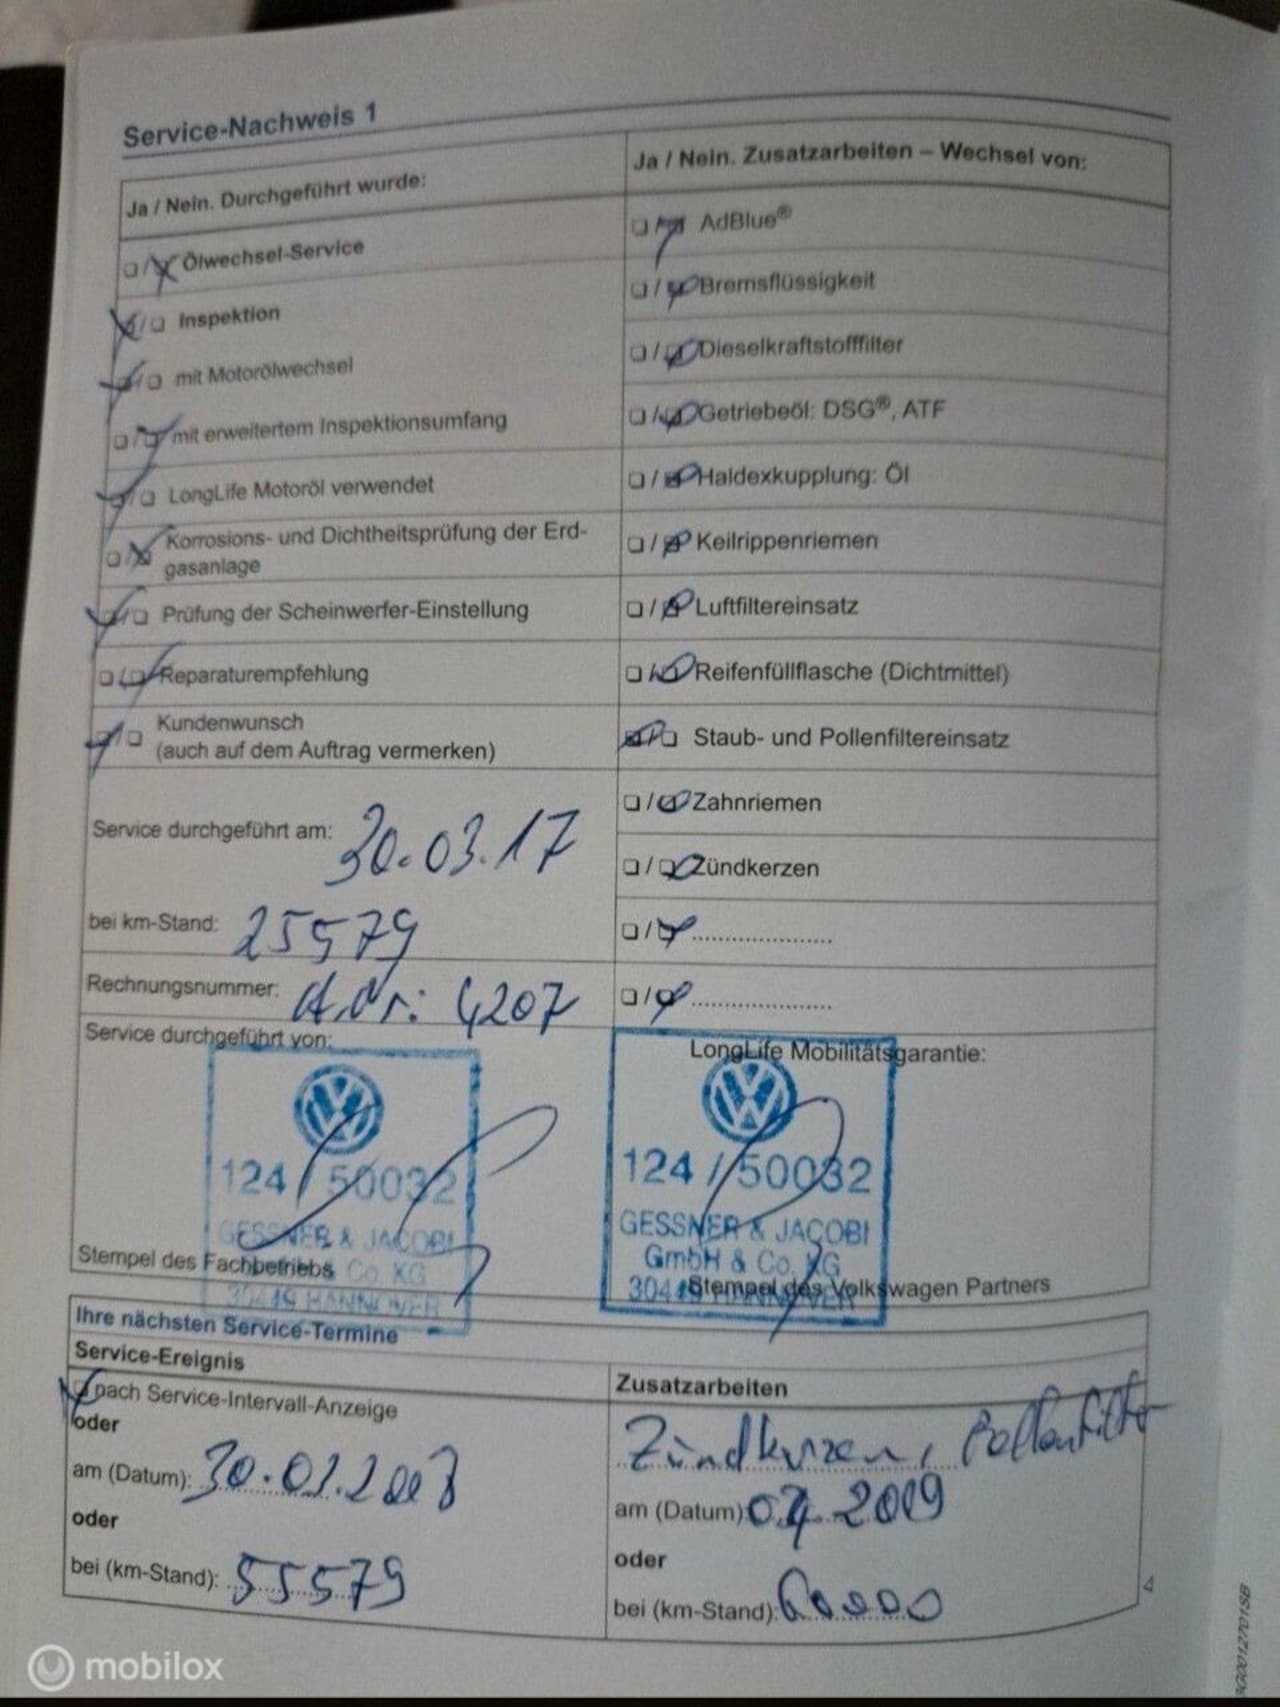 Service-Nachweis 1
Ja / Nein. Durchgeführt wurde:
Ölwechsel-Service
Inspektion
mit Motorölwechsel
mit erweitertem Inspektionsumfang
LongLife Motoröl verwendet
Korrosions- und Dichtheitsprüfung der Erd-
gasanlage
Prüfung der Scheinwerfer-Einstellung
Reparaturempfehlung
Kundenwunsch
(auch auf dem Auftrag vermerken)
Service durchgeführt am: 30.03.17
bei km-Stand: 25579
Rechnungsnummer: A.Nr.: 4207
Service durchgeführt von:
124 / 50032
GESSNER & JACOBI
Co. KG
30419 HANNOVER
Stempel des Fachbetriebs
Ja / Nein. Zusatzarbeiten – Wechsel von:
AdBlue®
Bremsflüssigkeit
Dieselkraftstofffilter
Getriebeöl: DSG®, ATF
Haldexkupplung: Öl
Keilrippenriemen
Luftfiltereinsatz
Reifenfüllflasche (Dichtmittel)
Staub- und Pollenfiltereinsatz
Zahnriemen
Zündkerzen
LongLife Mobilitätsgarantie:
124 / 50032
GESSNER & JACOBI
GmbH & Co. KG
30419 HANNOVER
Stempel des Volkswagen Partners
Ihre nächsten Service-Termine
Service-Ereignis
nach Service-Intervall-Anzeige
oder
am (Datum):
oder
bei (km-Stand): 55579
Zusatzarbeiten
Zündkerzen, Pollenfilter
am (Datum): 2019
oder
bei (km-Stand): 60000
4
3G0012701SB
mobilox